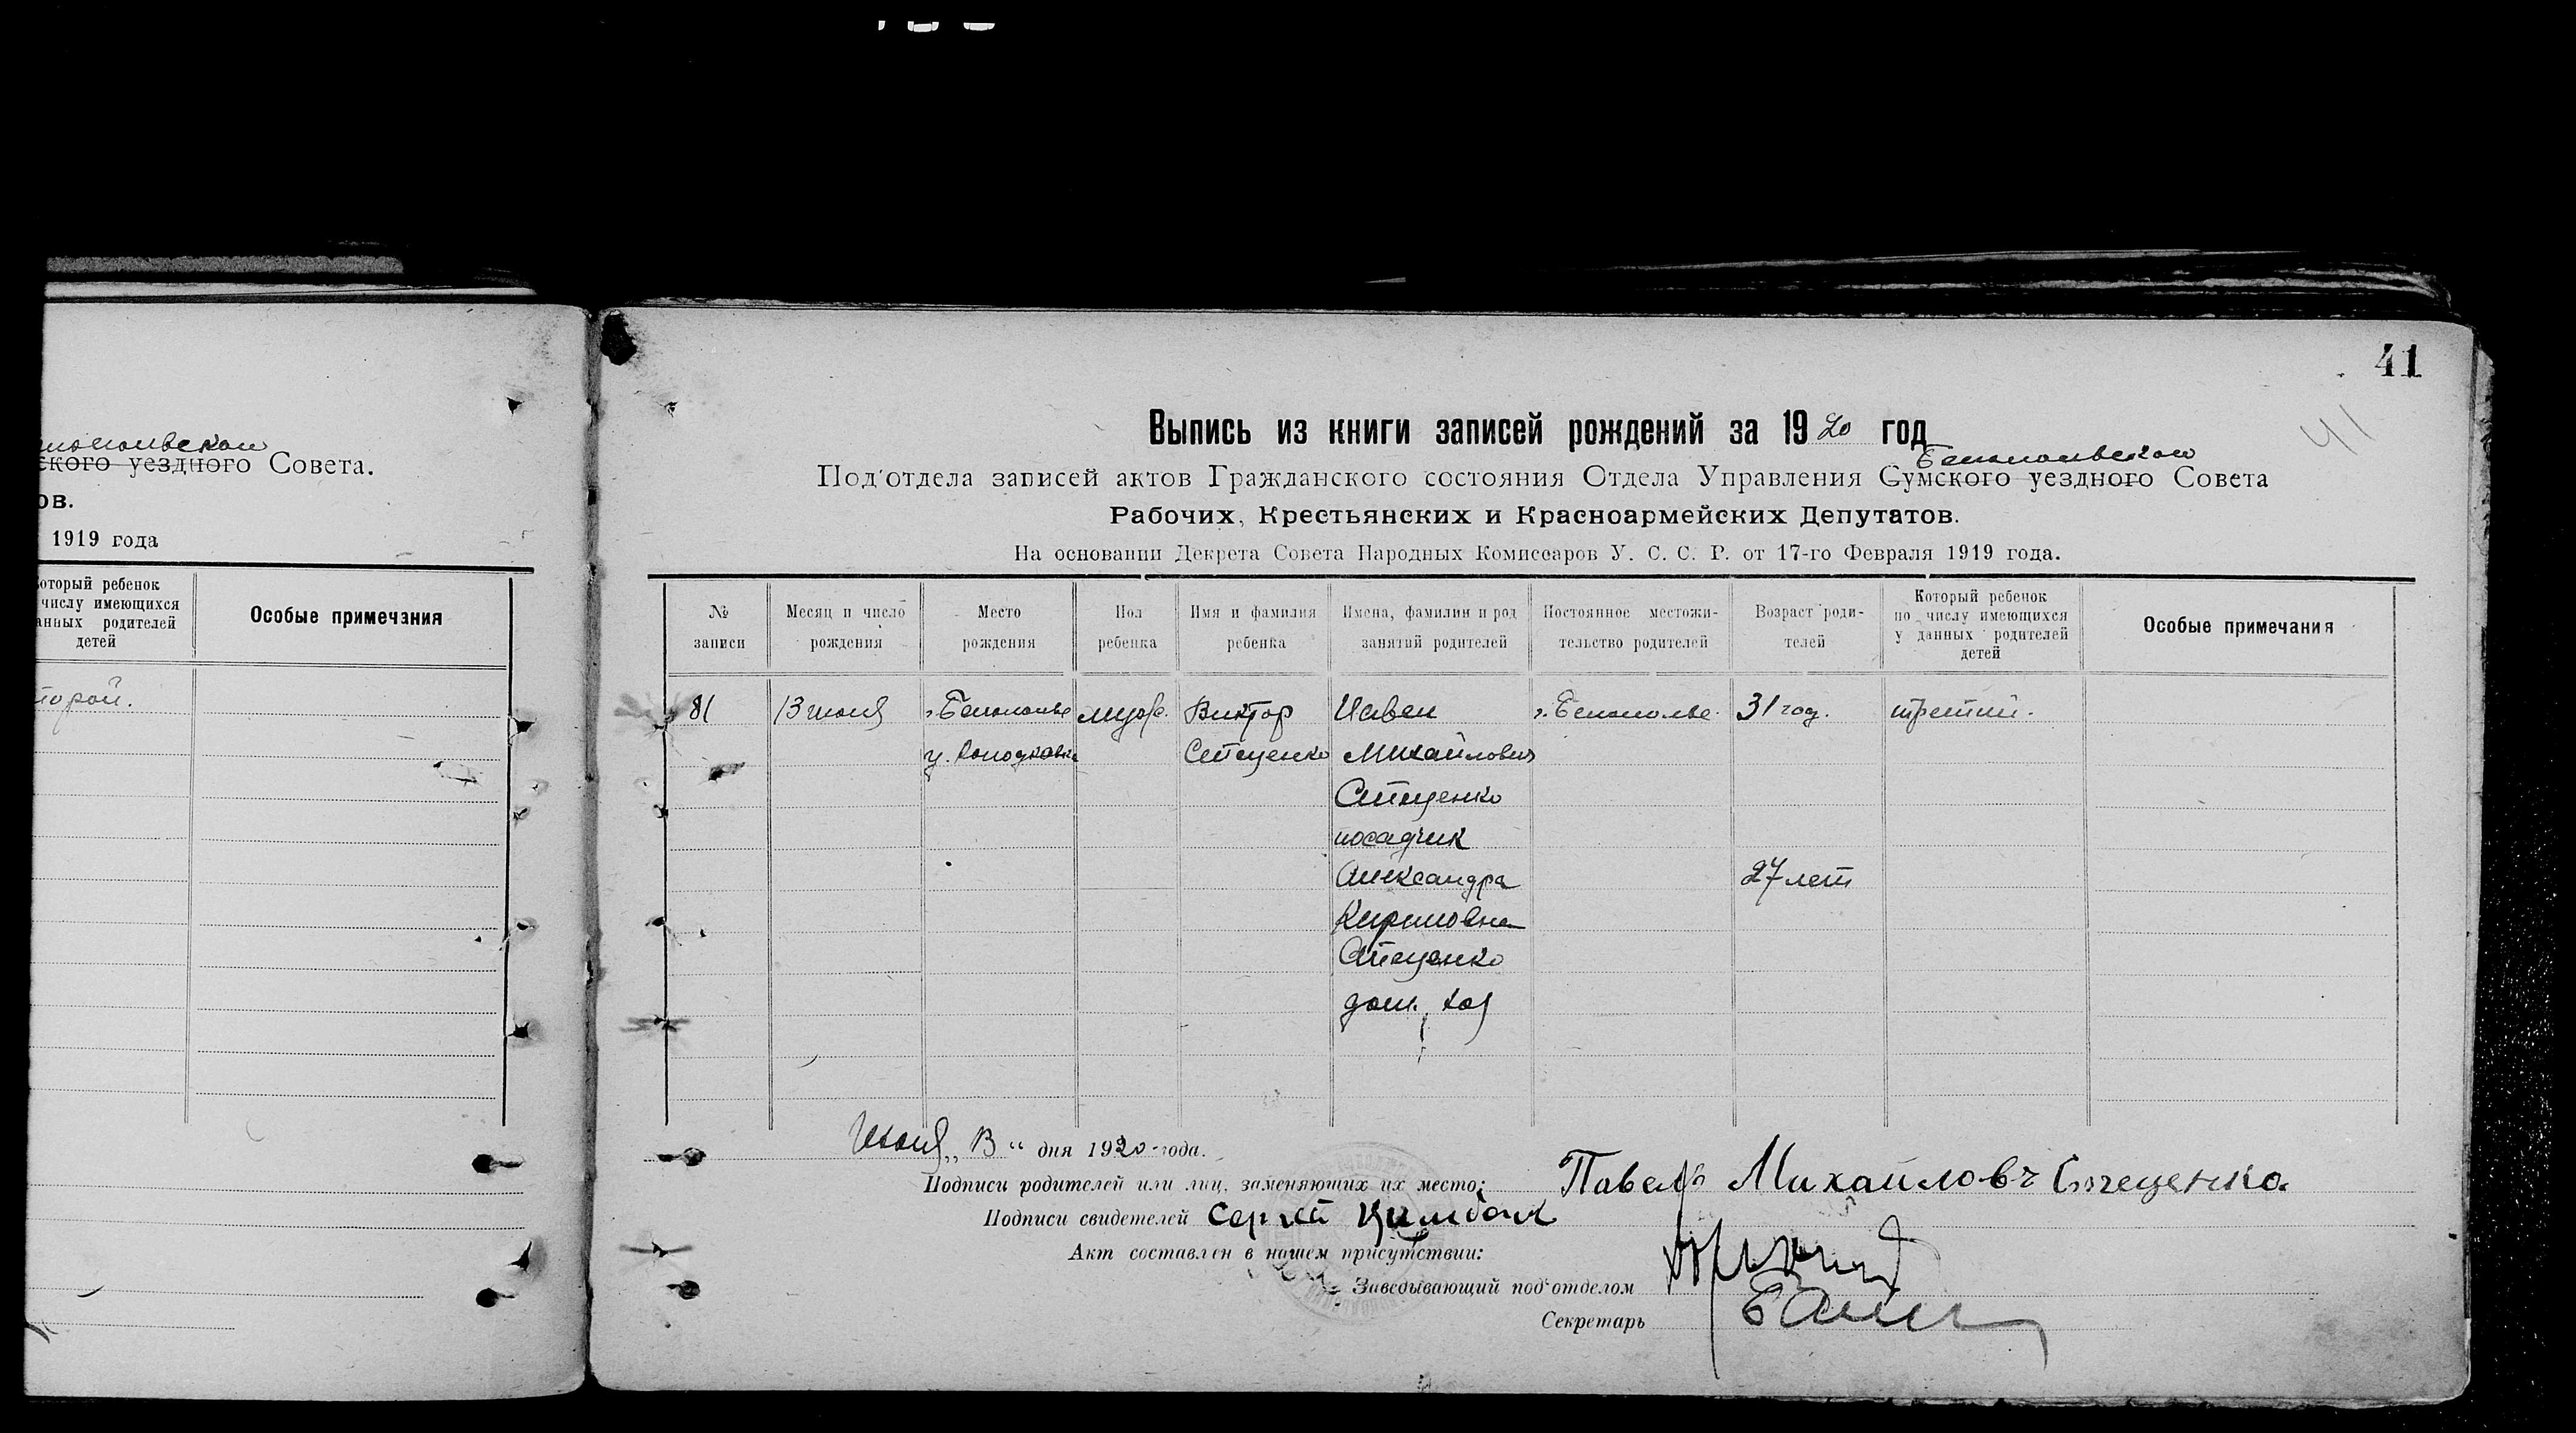 41
41
Выпись из книги записей рождений за 1920 год
Белопольского
Под'отдела записей актов Гражданского состояния Отдела Управления Сумского уездного Совета
Рабочих, Крестьянских и Красноармейских Депутатов.
На основании Декрета Совета Народных Комиссаров У. С. С. Р. от 17-го Февраля 1919 года.
ского уездного Совета.
ов.
1919 года
который ребенок
числу имеющихся
анных родителей
детей
Особые примечания
торой.
№ записи
Месяц и число рождения
Место рождения
Пол ребенка
Имя и фамилия ребенка
Имена, фамилии и род занятий родителей
Постоянное местожи-
тельство родителей
Возраст роди-
телей
Который ребенок
по числу имеющихся
у данных родителей
детей
Особые примечания
81 13 июня г. Белополье муж. Виктор Павел г. Белополье 31 год. третий.
Стеценко Михайлович
Стеценко
посадчик
Александра 27 лет
Кириловна
Стеценко
дом. хоз
„ “ дня 1920 года.
Подписи родителей или лиц, заменяющих их место: Павелъ Михайловъ Стеценко
Подписи свидетелей Сергей
Акт составлен в нашем присутствии:
Заведывающий под'отделом
Секретарь